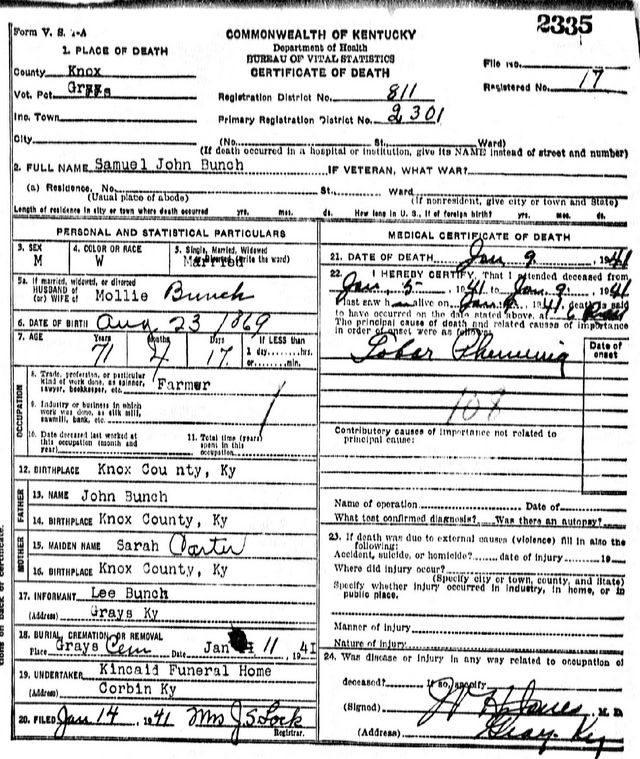 2335
Form V. S. 1-A
COMMONWEALTH OF KENTUCKY
Department of Health
BUREAU OF VITAL STATISTICS
CERTIFICATE OF DEATH
1. PLACE OF DEATH
County Knox
Vot. Pct Grays
Inc. Town
City
File No.
Registered No. 17
Registration District No. 811
Primary Registration District No. 2301
(No. St. Ward)
(If death occurred in a hospital or institution, give its NAME instead of street and number)
2. FULL NAME Samuel John Bunch IF VETERAN, WHAT WAR?
(a) Residence. No. St. Ward
(Usual place of abode) (If nonresident, give city or town and State)
Length of residence in city or town where death occurred yrs. mos. ds. How long in U. S., if of foreign birth? yrs. mos. ds.
PERSONAL AND STATISTICAL PARTICULARS
3. SEX M
4. COLOR OR RACE W
5. Single, Married, Widowed or Divorced (write the word) Married
5a. If married, widowed, or divorced
HUSBAND of
(or) WIFE of Mollie Bunch
6. DATE OF BIRTH Aug 23 1869
7. AGE Years 71 Months 4 Days 17 If LESS than
1 day, hrs.
or min.
OCCUPATION
8. Trade, profession, or particular
kind of work done, as spinner,
sawyer, bookkeeper, etc. Farmer
9. Industry or business in which
work was done, as silk mill,
sawmill, bank, etc.
10. Date deceased last worked at
this occupation (month and
year)
11. Total time (years)
spent in this
occupation
12. BIRTHPLACE Knox County, Ky
FATHER
13. NAME John Bunch
14. BIRTHPLACE Knox County, Ky
MOTHER
15. MAIDEN NAME Sarah Carter
16. BIRTHPLACE Knox County, Ky
17. INFORMANT Lee Bunch
(Address) Grays Ky
18. BURIAL, CREMATION OR REMOVAL
Place Grays Cem Date Jan 11, 1941
19. UNDERTAKER Kincaid Funeral Home
(Address) Corbin Ky
20. FILED Jan 14 1941 Mrs J S Lock
Registrar.
MEDICAL CERTIFICATE OF DEATH
21. DATE OF DEATH Jan 9 1941
22. I HEREBY CERTIFY, That I attended deceased from
Jan 5 1941 to Jan 9, 1941
I last saw h alive on Jan 1941, death is said
to have occurred on the date stated above, at 6
The principal cause of death and related causes of importance
in order of onset were as follows:
Date of
onset
Lobar Pneumonia
108
Contributory causes of importance not related to
principal cause:
Name of operation Date of
What test confirmed diagnosis? Was there an autopsy?
23. If death was due to external causes (violence) fill in also the
following:
Accident, suicide, or homicide? date of injury 19
Where did injury occur?
(Specify city or town, county, and State)
Specify whether injury occurred in industry, in home, or in
public place.
Manner of injury
Nature of injury
24. Was disease or injury in any way related to occupation of
deceased? If so, specify
(Signed) Jones M. D.
(Address) Gray Ky